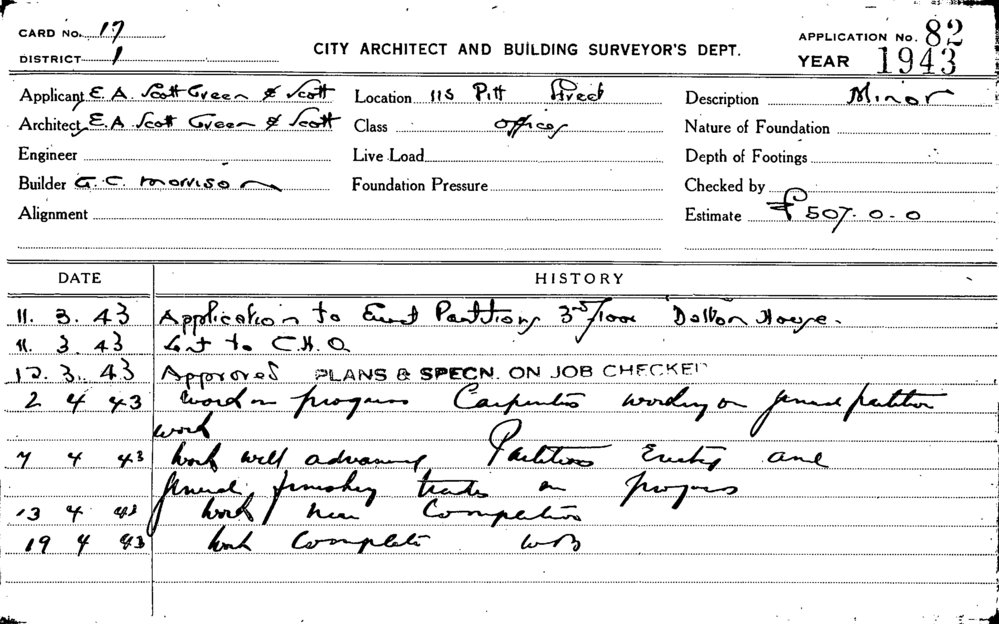 CARD No. 17
DISTRICT 1
CITY ARCHITECT AND BUILDING SURVEYOR'S DEPT.
APPLICATION No. 82
YEAR 1943
Applicant E. A. Scott Green & Scott
Location 115 Pitt Street
Description Minor
Architect E. A. Scott Green & Scott
Class offices
Nature of Foundation
Engineer
Live Load
Depth of Footings
Builder G. C. Morrison
Foundation Pressure
Checked by
Alignment
Estimate £507.0.0
DATE HISTORY
11. 3. 43 Application to Erect Partitions 3rd floor Dalton House.
11. 3. 43 to C.H.O
12. 3. 43 Approved PLANS & SPECN. ON JOB CHECKED
2 4 43 work in progress Carpenters working on general partition
work
7 4 43 Work well advanced Partitions Erected and
general finishing trades in progress
13 4 43 Work near Completion
19 4 43 Work Complete WB